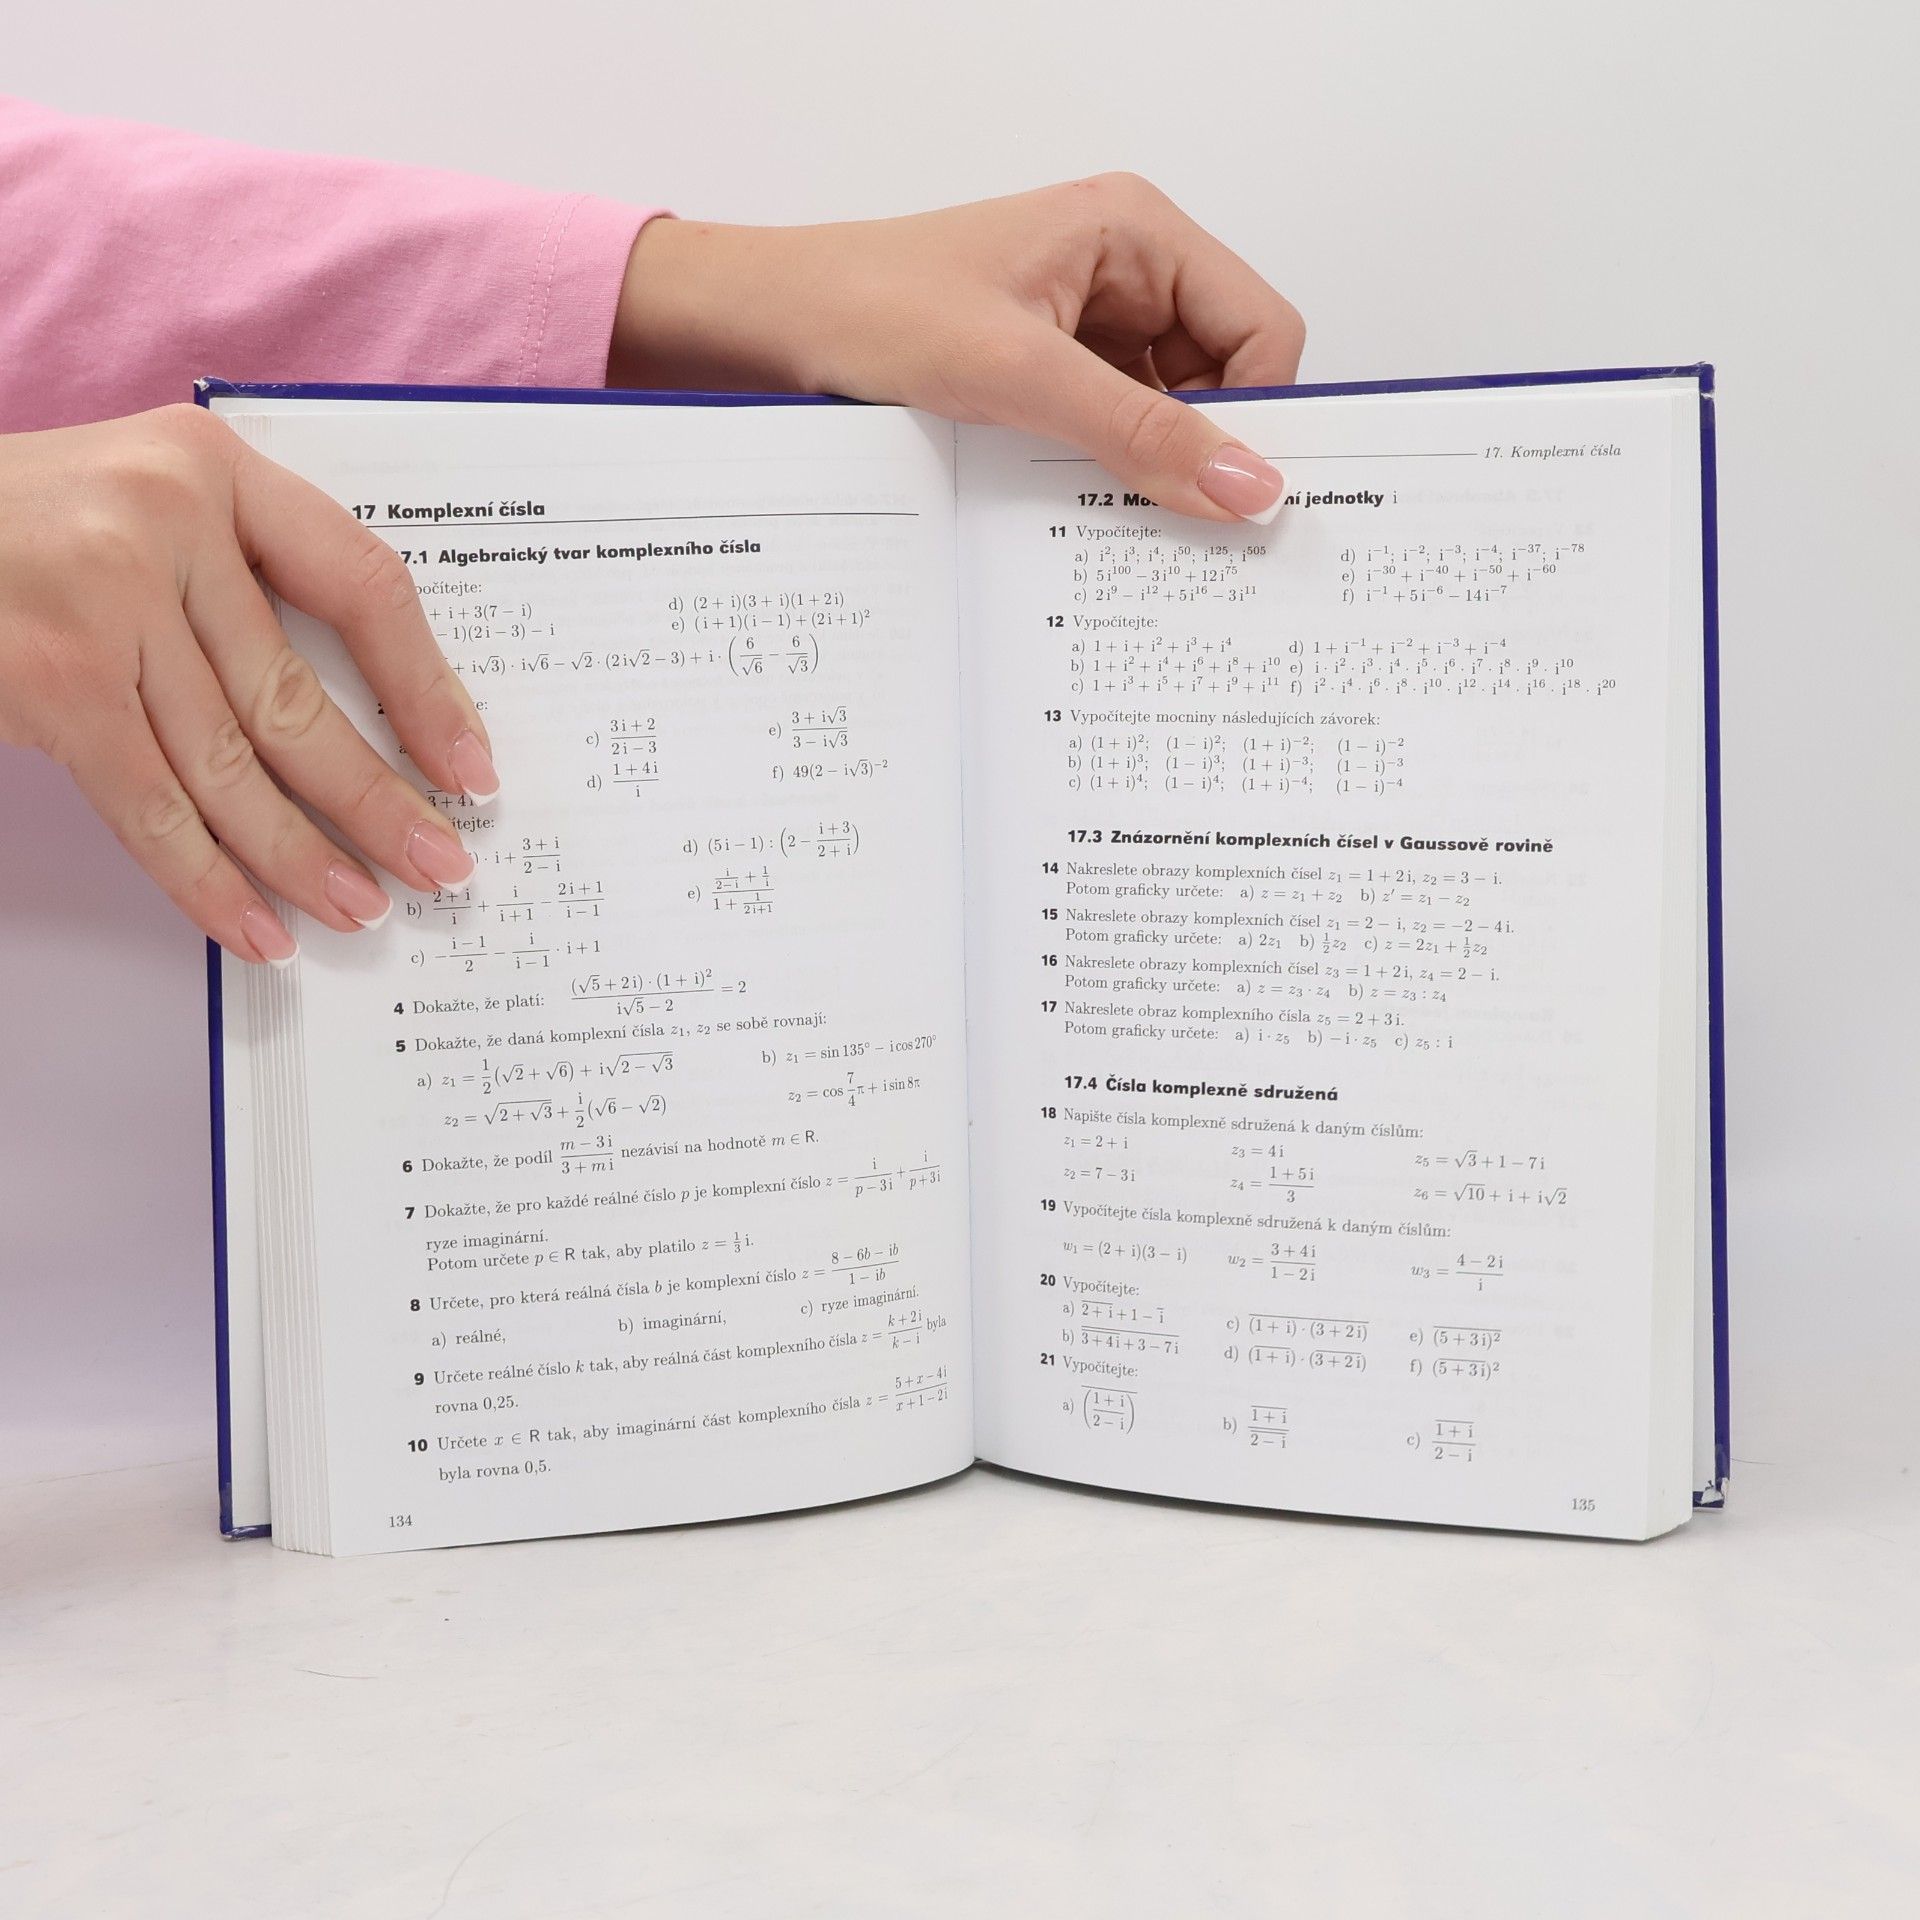 17 Komplexní čísla
7.1 Algebraický tvar komplexního čísla
počítejte:
+ i + 3(7 − i)
d) (2 + i)(3 + i)(1 + 2i)
− 1)(2i − 3) − i
e) (i + 1)(i − 1) + (2i + 1)²
+ i√3) · i√6 − √2 · (2i√2 − 3) + i · (6/√6 − 6/√3)
c) (3i + 2)/(2i − 3)
e) (3 + i√3)/(3 − i√3)
d) (1 + 4i)/i
f) 49(2 − i√3)⁻²
3 + 4i
ítejte:
) · i + (3 + i)/(2 − i)
d) (5i − 1) : (2 − (i + 3)/(2 + i))
b) (2 + i)/i + i/(i + 1) − (2i + 1)/(i − 1)
e) (i/(2−i) + 1/i)/(1 + 1/(2i+1))
c) −(i − 1)/2 − i/(i − 1) · i + 1
4 Dokažte, že platí: ((√5 + 2i) · (1 + i)²)/(i√5 − 2) = 2
5 Dokažte, že daná komplexní čísla z₁, z₂ se sobě rovnají:
a) z₁ = 1/2(√2 + √6) + i√(2 − √3)
b) z₁ = sin 135° − i cos 270°
z₂ = √(2 + √3) + i/2(√6 − √2)
z₂ = cos 7/4 π + i sin 8π
6 Dokažte, že podíl (m − 3i)/(3 + mi) nezávisí na hodnotě m ∈ R.
7 Dokažte, že pro každé reálné číslo p je komplexní číslo z = i/(p − 3i) + i/(p + 3i)
ryze imaginární.
Potom určete p ∈ R tak, aby platilo z = 1/3 i.
8 Určete, pro která reálná čísla b je komplexní číslo z = (8 − 6b − ib)/(1 − ib)
a) reálné, b) imaginární, c) ryze imaginární.
9 Určete reálné číslo k tak, aby reálná část komplexního čísla z = (k + 2i)/(k − i) byla
rovna 0,25.
10 Určete x ∈ R tak, aby imaginární část komplexního čísla z = (5 + x − 4i)/(x + 1 − 2i)
byla rovna 0,5.
134
17. Komplexní čísla
17.2 ní jednotky i
11 Vypočítejte:
a) i²; i³; i⁴; i⁵⁰; i¹²⁵; i⁵⁰⁵
d) i⁻¹; i⁻²; i⁻³; i⁻⁴; i⁻³⁷; i⁻⁷⁸
b) 5i¹⁰⁰ − 3i¹⁰ + 12i⁷⁵
e) i⁻³⁰ + i⁻⁴⁰ + i⁻⁵⁰ + i⁻⁶⁰
c) 2i⁹ − i¹² + 5i¹⁶ − 3i¹¹
f) i⁻¹ + 5i⁻⁶ − 14i⁻⁷
12 Vypočítejte:
a) 1 + i + i² + i³ + i⁴
d) 1 + i⁻¹ + i⁻² + i⁻³ + i⁻⁴
b) 1 + i² + i⁴ + i⁶ + i⁸ + i¹⁰
e) i · i² · i³ · i⁴ · i⁵ · i⁶ · i⁷ · i⁸ · i⁹ · i¹⁰
c) 1 + i³ + i⁵ + i⁷ + i⁹ + i¹¹
f) i² · i⁴ · i⁶ · i⁸ · i¹⁰ · i¹² · i¹⁴ · i¹⁶ · i¹⁸ · i²⁰
13 Vypočítejte mocniny následujících závorek:
a) (1 + i)²; (1 − i)²; (1 + i)⁻²; (1 − i)⁻²
b) (1 + i)³; (1 − i)³; (1 + i)⁻³; (1 − i)⁻³
c) (1 + i)⁴; (1 − i)⁴; (1 + i)⁻⁴; (1 − i)⁻⁴
17.3 Znázornění komplexních čísel v Gaussově rovině
14 Nakreslete obrazy komplexních čísel z₁ = 1 + 2i, z₂ = 3 − i.
Potom graficky určete: a) z = z₁ + z₂ b) z′ = z₁ − z₂
15 Nakreslete obrazy komplexních čísel z₁ = 2 − i, z₂ = −2 − 4i.
Potom graficky určete: a) 2z₁ b) ½z₂ c) z = 2z₁ + ½z₂
16 Nakreslete obrazy komplexních čísel z₃ = 1 + 2i, z₄ = 2 − i.
Potom graficky určete: a) z = z₃ · z₄ b) z = z₃ : z₄
17 Nakreslete obraz komplexního čísla z₅ = 2 + 3i.
Potom graficky určete: a) i · z₅ b) −i · z₅ c) z₅ : i
17.4 Čísla komplexně sdružená
18 Napište čísla komplexně sdružená k daným číslům:
z₁ = 2 + i z₃ = 4i z₅ = √3 + 1 − 7i
z₂ = 7 − 3i z₄ = (1 + 5i)/3 z₆ = √10 + i + i√2
19 Vypočítejte čísla komplexně sdružená k daným číslům:
w₁ = (2 + i)(3 − i) w₂ = (3 + 4i)/(1 − 2i) w₃ = (4 − 2i)/i
20 Vypočítejte:
a) 2̅ ̅+̅ ̅i̅ + 1 − i̅
c) (̅1̅ ̅+̅ ̅i̅)̅ ̅·̅ ̅(̅3̅ ̅+̅ ̅2̅i̅)̅
e) (̅5̅ ̅+̅ ̅3̅i̅)̅²̅
b) 3̅ ̅+̅ ̅4̅i̅ ̅+̅ ̅3̅ ̅−̅ ̅7̅i̅
d) (1̅ ̅+̅ ̅i̅) · (3̅ ̅+̅ ̅2̅i̅)
f) (5̅ ̅+̅ ̅3̅i̅)²
21 Vypočítejte:
a) (̅(1 + i)/(2 − i))̅
b) (1̅ ̅+̅ ̅i̅)/(2̅ ̅−̅ ̅i̅)
c) (1̅ ̅+̅ ̅i̅)/(2 − i)
135